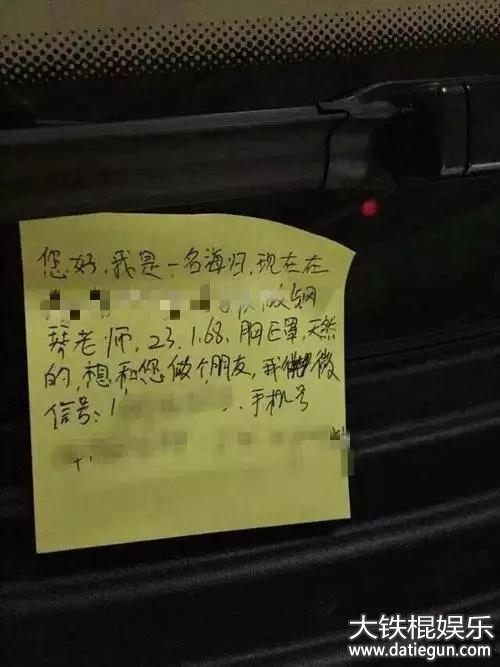 您好，我是一名海归，现在在
做钢
琴老师，23，1.68，胸E罩，天然
的，想和您做个朋友，我的微
信号：1 、手机号
大铁棍娱乐
www.datiegun.com